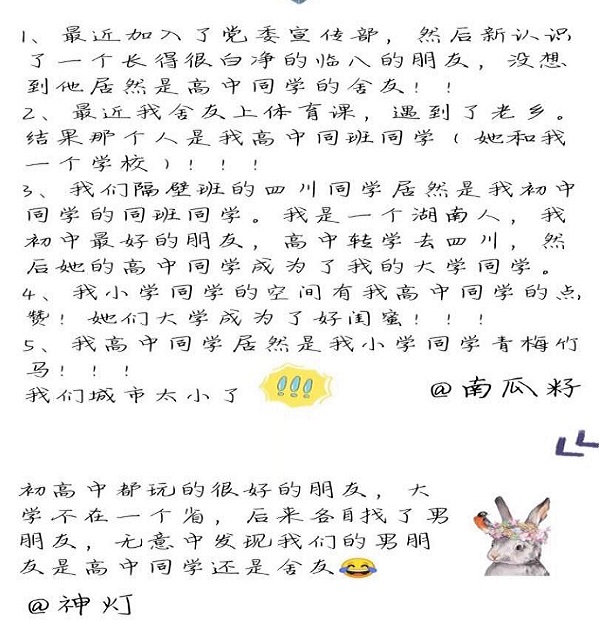 1、最近加入了党委宣传部，然后新认识
了一个长得很白净的临八的朋友，没想
到他居然是高中同学的舍友！！
2、最近我舍友上体育课，遇到了老乡。
结果那个人是我高中同班同学（她和我
一个学校）！！！
3、我们隔壁班的四川同学居然是我初中
同学的同班同学。我是一个湖南人，我
初中最好的朋友，高中转学去四川，然
后她的高中同学成为了我的大学同学。
4、我小学同学的空间有我高中同学的点
赞！她们大学成为了好闺蜜！！！
5、我高中同学居然是我小学同学青梅竹
马！！！
我们城市太小了
@南瓜籽
初高中都玩的很好的朋友，大
学不在一个省，后来各自找了男
朋友，无意中发现我们的男朋
友是高中同学还是舍友😂
@神灯